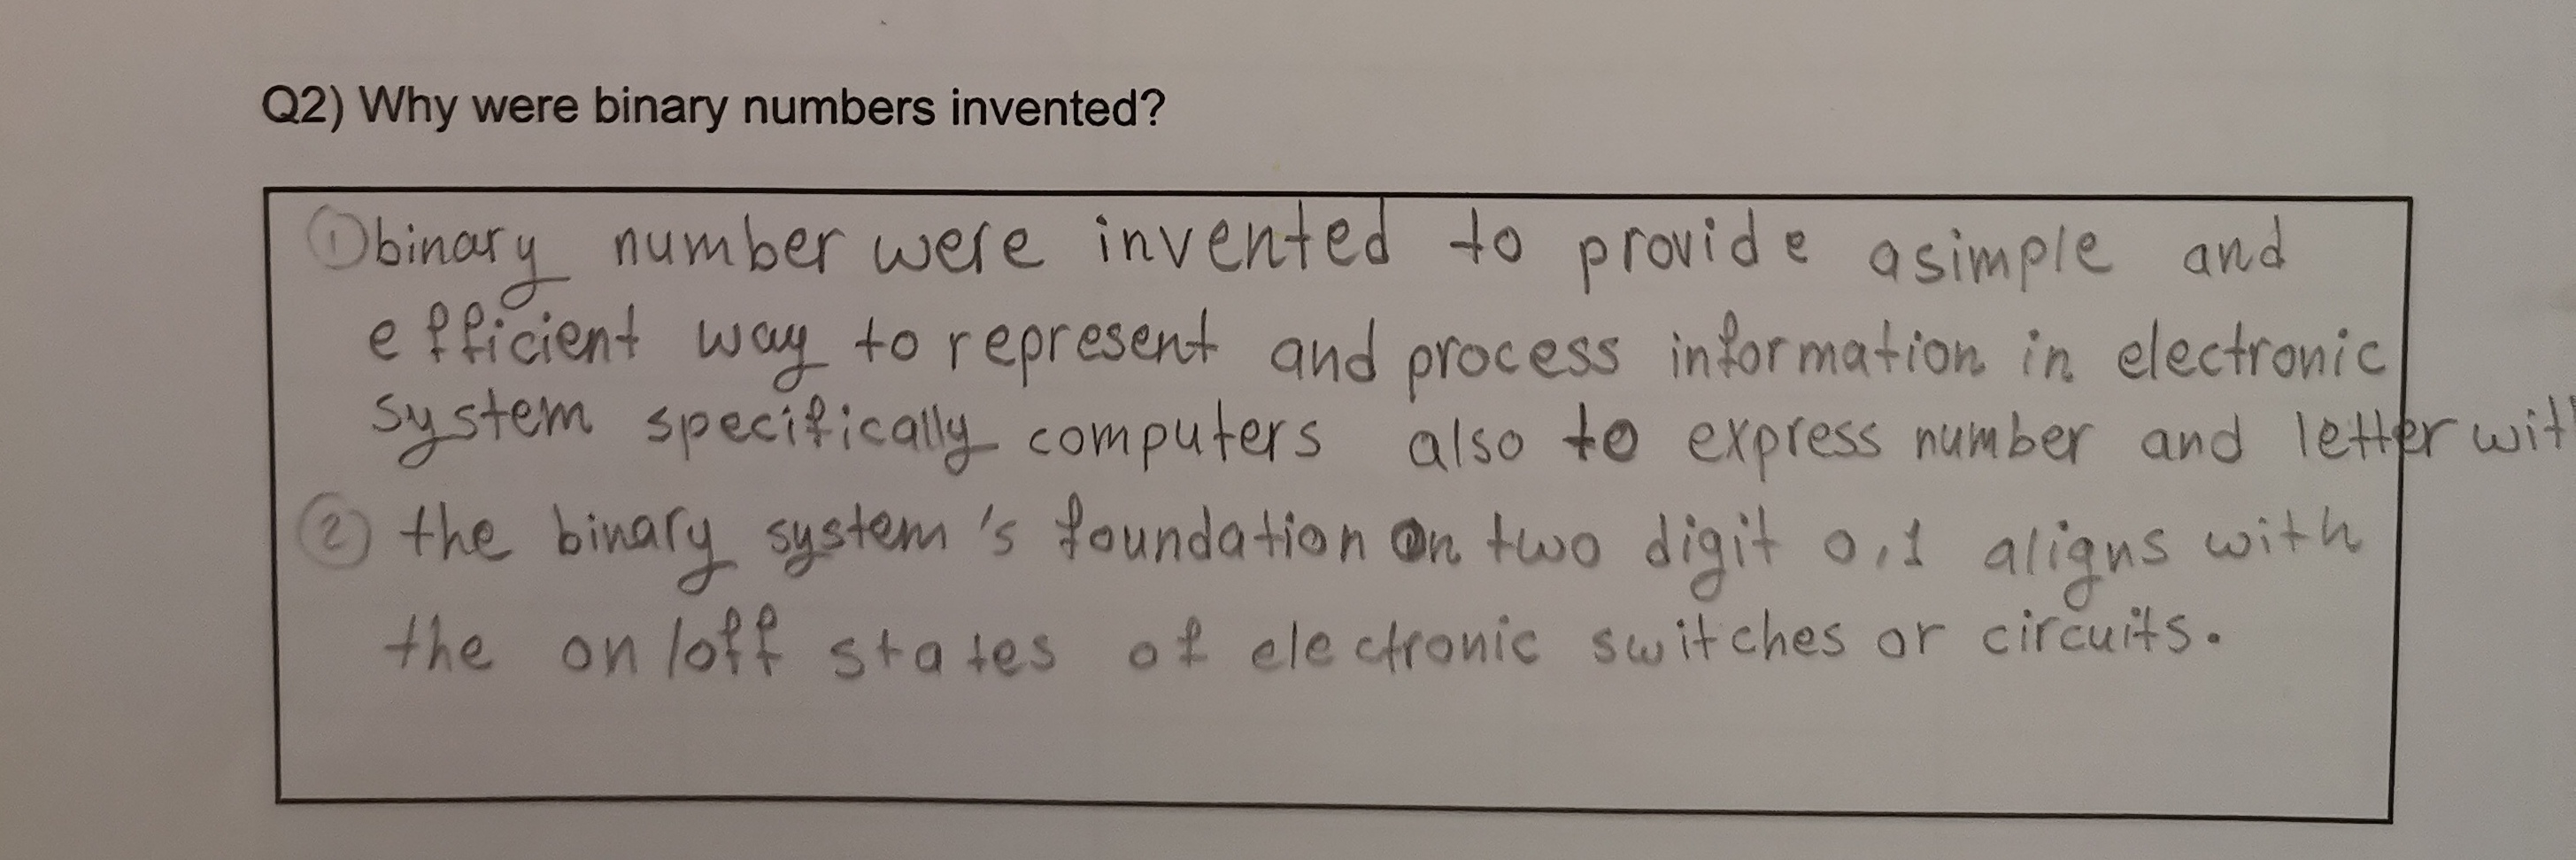 Q2) Why were binary numbers invented?
① binary number were invented to provide a simple and
efficient way to represent and process information in electronic
system specifically computers also to express number and letter
② the binary system's foundation on two digit 0,1 aligns with
the on/off states of electronic switches or circuits.